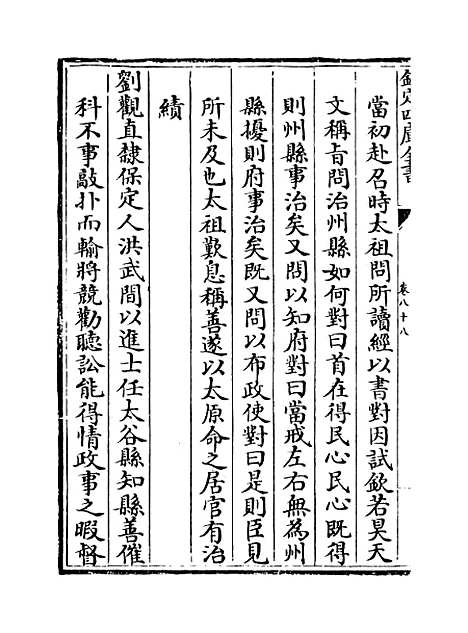 欽定四庫全書
卷八十八
當初赴召時太祖問所讀經以書對因試欽若昊天
文稱旨問治州縣如何對曰首在得民心民心既得
則州縣事治矣又問以知府對曰當戒左右無為州
縣擾則府事治矣既又問以布政使對曰是則臣見
所未及也太祖歎息稱善遂以太原命之居官有治
績
劉觀直隸保定人洪武間以進士任太谷縣知縣善催
科不事敲扑而輸將競勸聽訟能得情政事之暇督